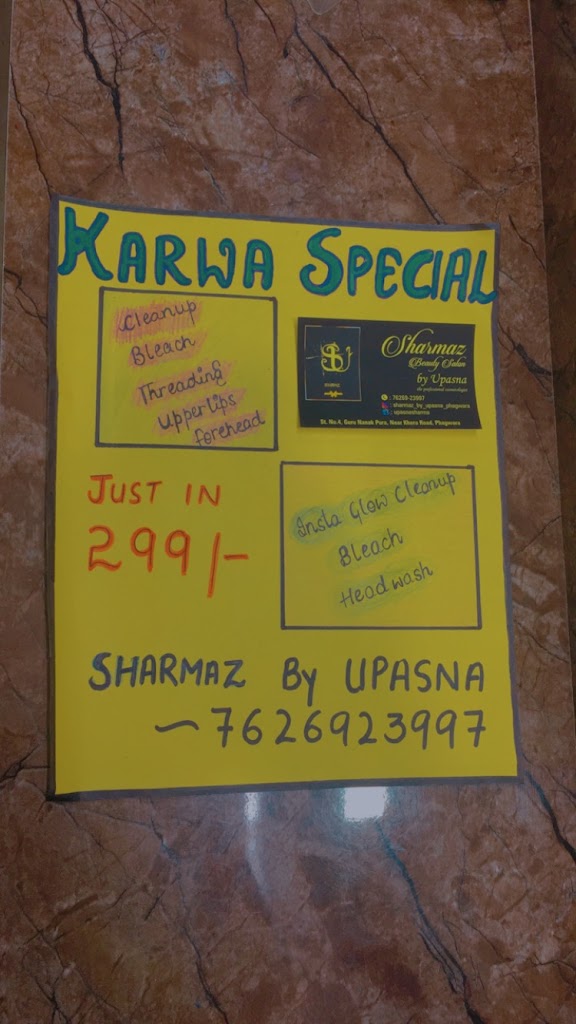 KARWA SPECIAL
Cleanup
Bleach
Threading
Upperlips
forehead
Sharmaz
Beauty Salon
by Upasna
the professional cosmetologist
: 76269-23997
: sharmaz_by_upasna_phagwara
: upasnasharma
St. No.4, Guru Nanak Pura, Near Khera Road, Phagwara
JUST IN
299/-
Insta Glow Cleanup
Bleach
Headwash
SHARMAZ By UPASNA
~7626923997